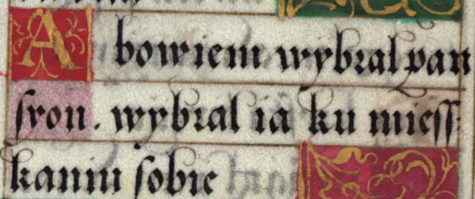 A bowiem wybral pan
syon. wybral ia ku miess
kaniu sobie